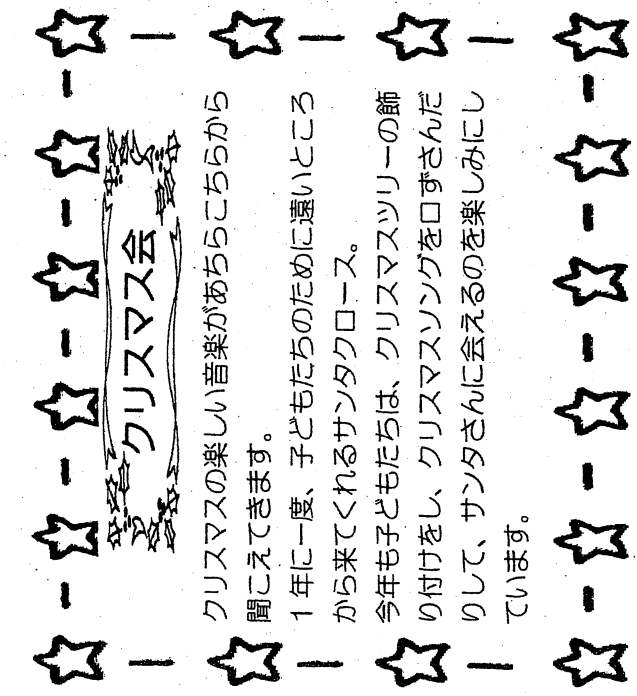 クリスマス会
クリスマスの楽しい音楽があちらこちらから
聞こえてきます。
1年に一度、子どもたちのために遠いところ
から来てくれるサンタクロース。
今年も子どもたちは、クリスマスツリーの飾
り付けをし、クリスマスソングを口ずさんだ
りして、サンタさんに会えるのを楽しみにし
ています。